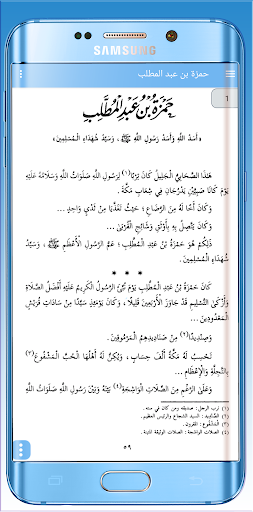 SAMSUNG
حمزة بن عبد المطلب
٦
حَمْزَةُ بْنُ عَبْدِ الْمُطَّلِبِ
« أَسَدُ اللَّهِ وَأَسَدُ رَسُولِ اللَّهِ ﷺ ، وَسَيِّدُ شُهَدَاءِ الْمُسْلِمِينَ »
هَذَا الصَّحَابِيُّ الْجَلِيلُ كَانَ تِرْبًا(١) لِرَسُولِ اللَّهِ صَلَوَاتُ اللَّهِ وَسَلَامُهُ عَلَيْهِ
يَوْمَ كَانَا صَبِيَّيْنِ يَدْرُجَانِ فِي شِعَابِ مَكَّةَ .
وَكَانَ أَخًا لَهُ مِنَ الرَّضَاعِ ؛ حَيْثُ تَغَذَّيَا مِنْ ثَدْيٍ وَاحِدٍ ...
وَكَانَ يَتَّصِلُ بِهِ بِأَوْثَقِ وَشَائِجِ الْقُرْبَى ...
ذَلِكُمْ هُوَ حَمْزَةُ بْنُ عَبْدِ الْمُطَّلِبِ ؛ عَمُّ الرَّسُولِ الْأَعْظَمِ ﷺ ، وَسَيِّدُ
شُهَدَاءِ الْمُسْلِمِينَ .
* * *
كَانَ حَمْزَةُ بْنُ عَبْدِ الْمُطَّلِبِ يَوْمَ نُبِّئَ الرَّسُولُ الْكَرِيمُ عَلَيْهِ أَفْضَلُ الصَّلَاةِ
وَأَزْكَى التَّسْلِيمِ قَدْ جَاوَزَ الْأَرْبَعِينَ قَلِيلًا ، وَكَانَ يَوْمَئِذٍ سَيِّدًا مِنْ سَادَاتِ قُرَيْشٍ
الْمَعْدُودِينَ ...
وَصِنْدِيدًا(٢) مِنْ صَنَادِيدِهِمُ الْمَرْمُوقِينَ ...
تَحْسِبُ لَهُ مَكَّةُ أَلْفَ حِسَابٍ ، وَيُكِنُّ لَهُ أَهْلُهَا الْحُبَّ الْمَشْفُوعَ(٣)
بِالتَّجِلَّةِ وَالْإِعْظَامِ ...
وَعَلَى الرَّغْمِ مِنَ الصِّلَاتِ الْوَاشِجَةِ(٤) بَيْنَهُ وَبَيْنَ رَسُولِ اللَّهِ صَلَوَاتُ اللَّهِ
(١) ترب الرجل : صديقه ومن كان في سنه .
(٢) الصنديد : السيد الشجاع والرئيس العظيم .
(٣) المشفوع : المقرون .
(٤) الصلات الواشجة : الصلات الوثيقة الثابتة .
٥٩